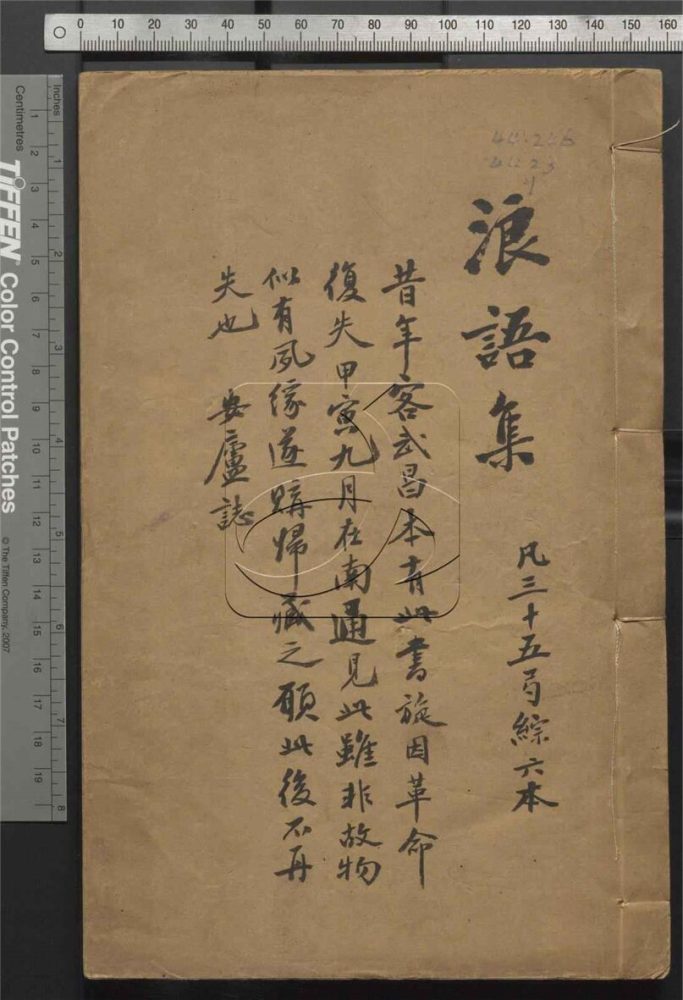 浪語集
凡三十五弓綜六本
昔年客武昌本有此書旋因革命
復失甲寅九月在南通見此雖非故物
似有夙緣遂購歸藏之願此後不再
失也 安廬誌
44.226
0 10 20 30 40 50 60 70 80 90 100 110 120 130 140 150 160
Inches
1 2 3 4 5 6 7 8
Centimetres
1 2 3 4 5 6 7 8 9 10 11 12 13 14 15 16 17 18 19
TIFFEN Color Control Patches
© The Tiffen Company, 2007